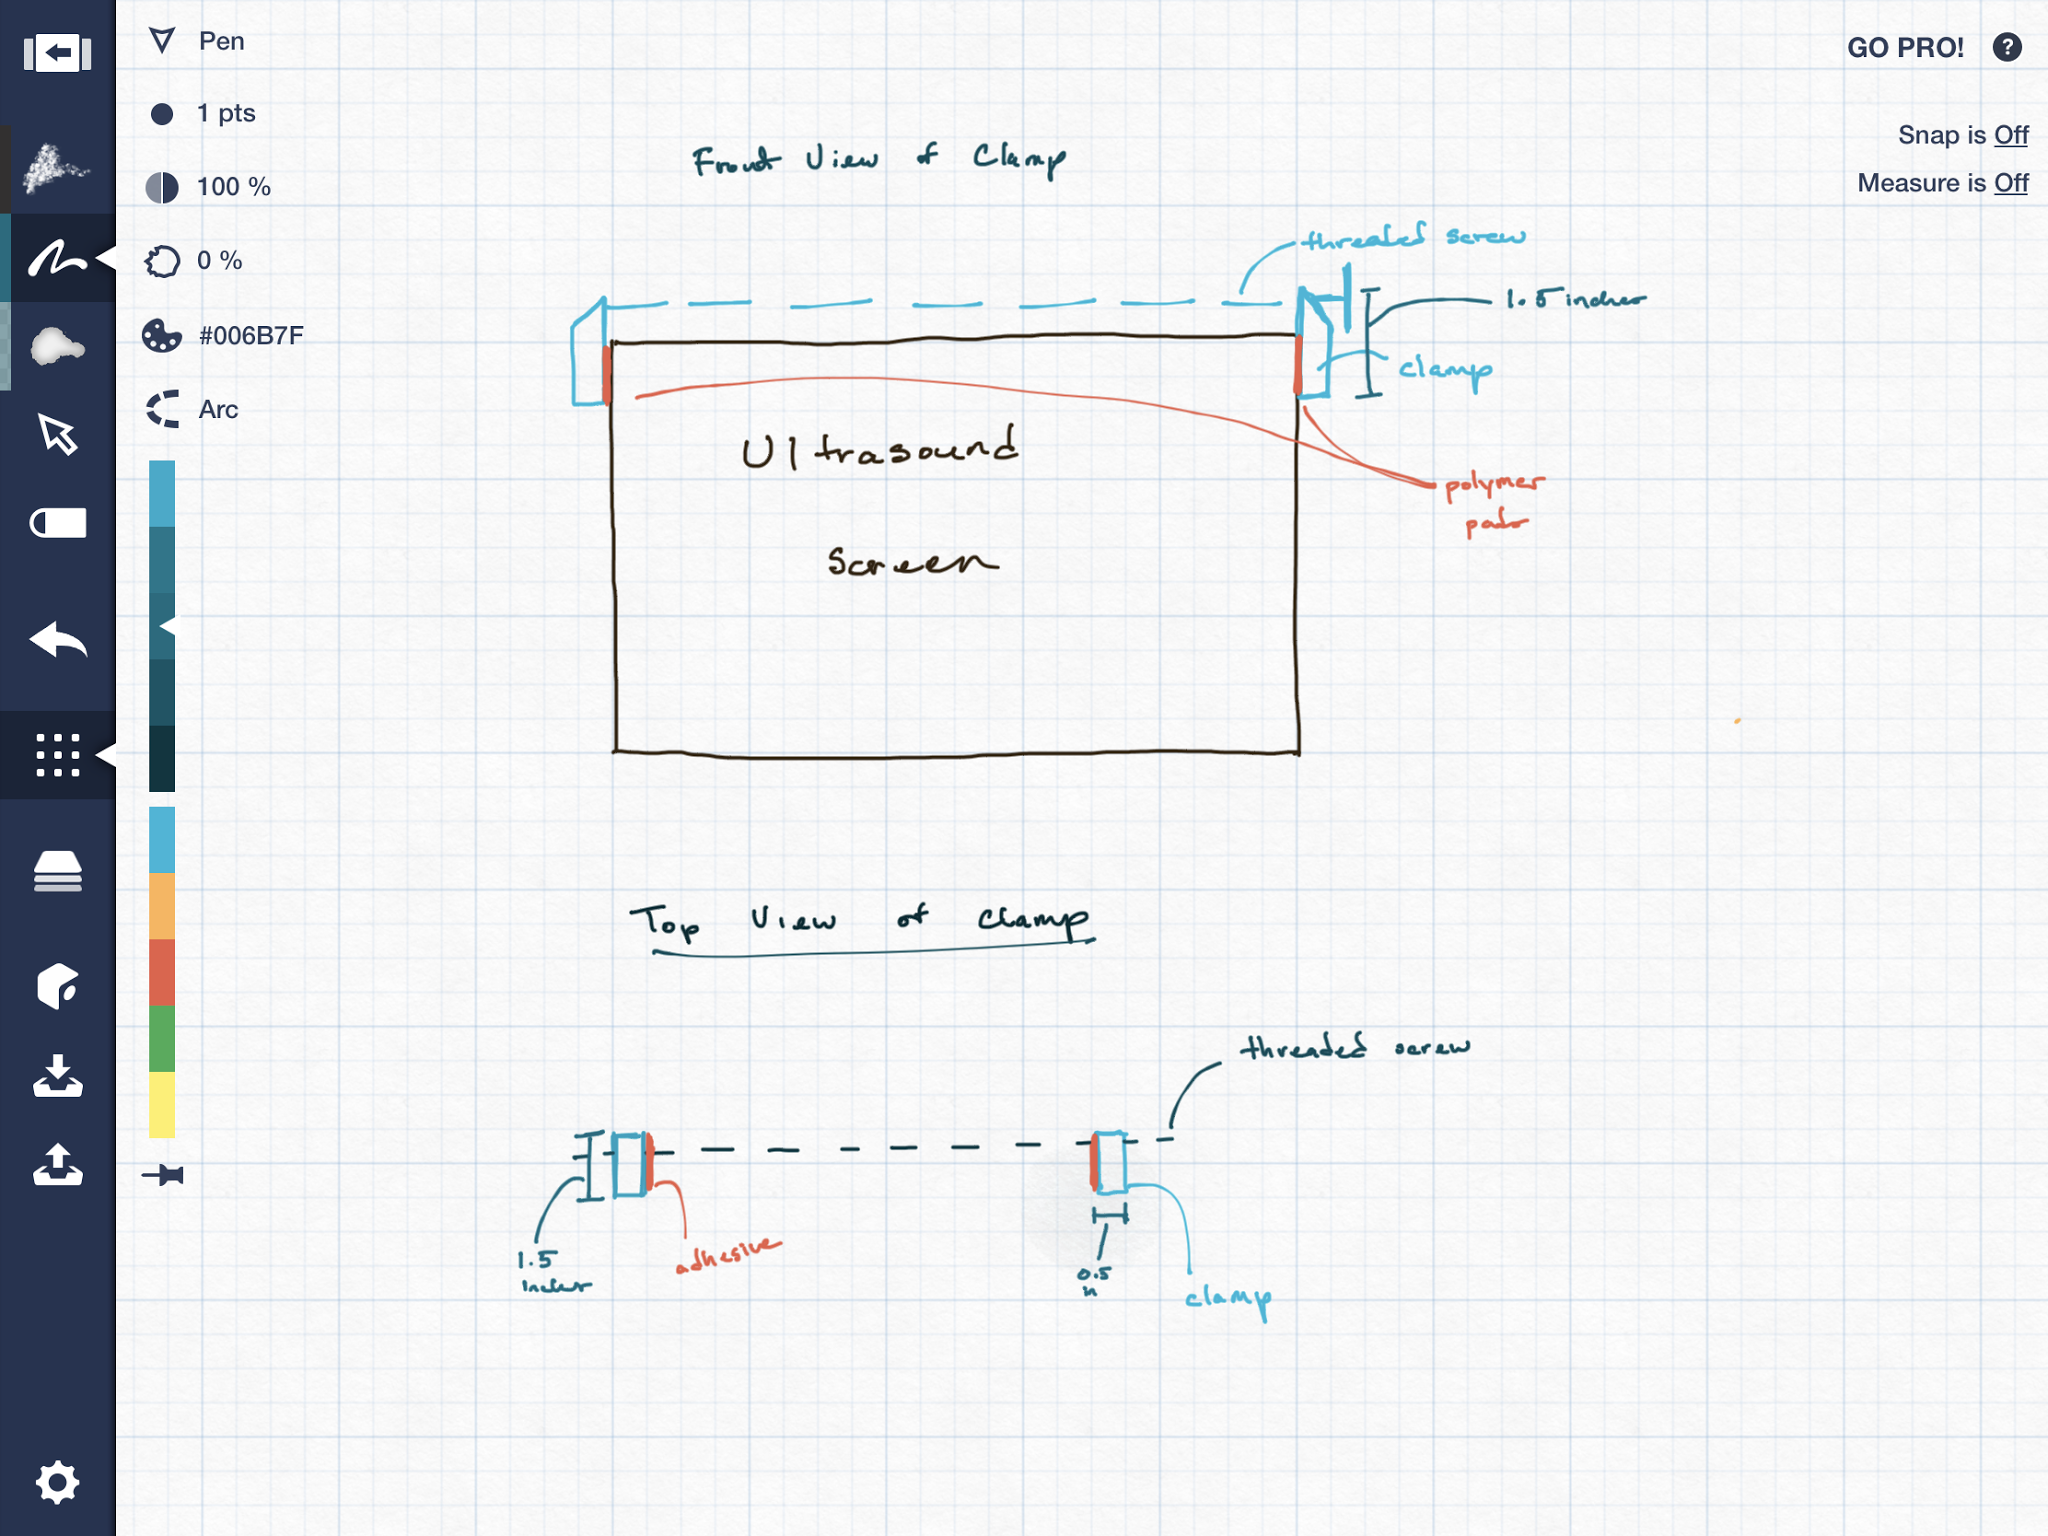 Pen
1 pts
100 %
0 %
#006B7F
Arc
GO PRO!
?
Snap is Off
Measure is Off
Front View of Clamp
threaded screw
1.5 inches
clamp
Ultrasound
Screen
polymer
pads
Top View of Clamp
threaded screw
1.5
inches
adhesive
0.5
in
clamp